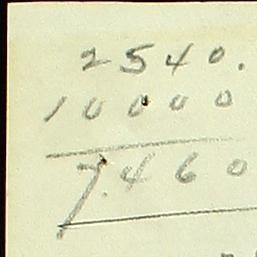 2540.
10000
7.460